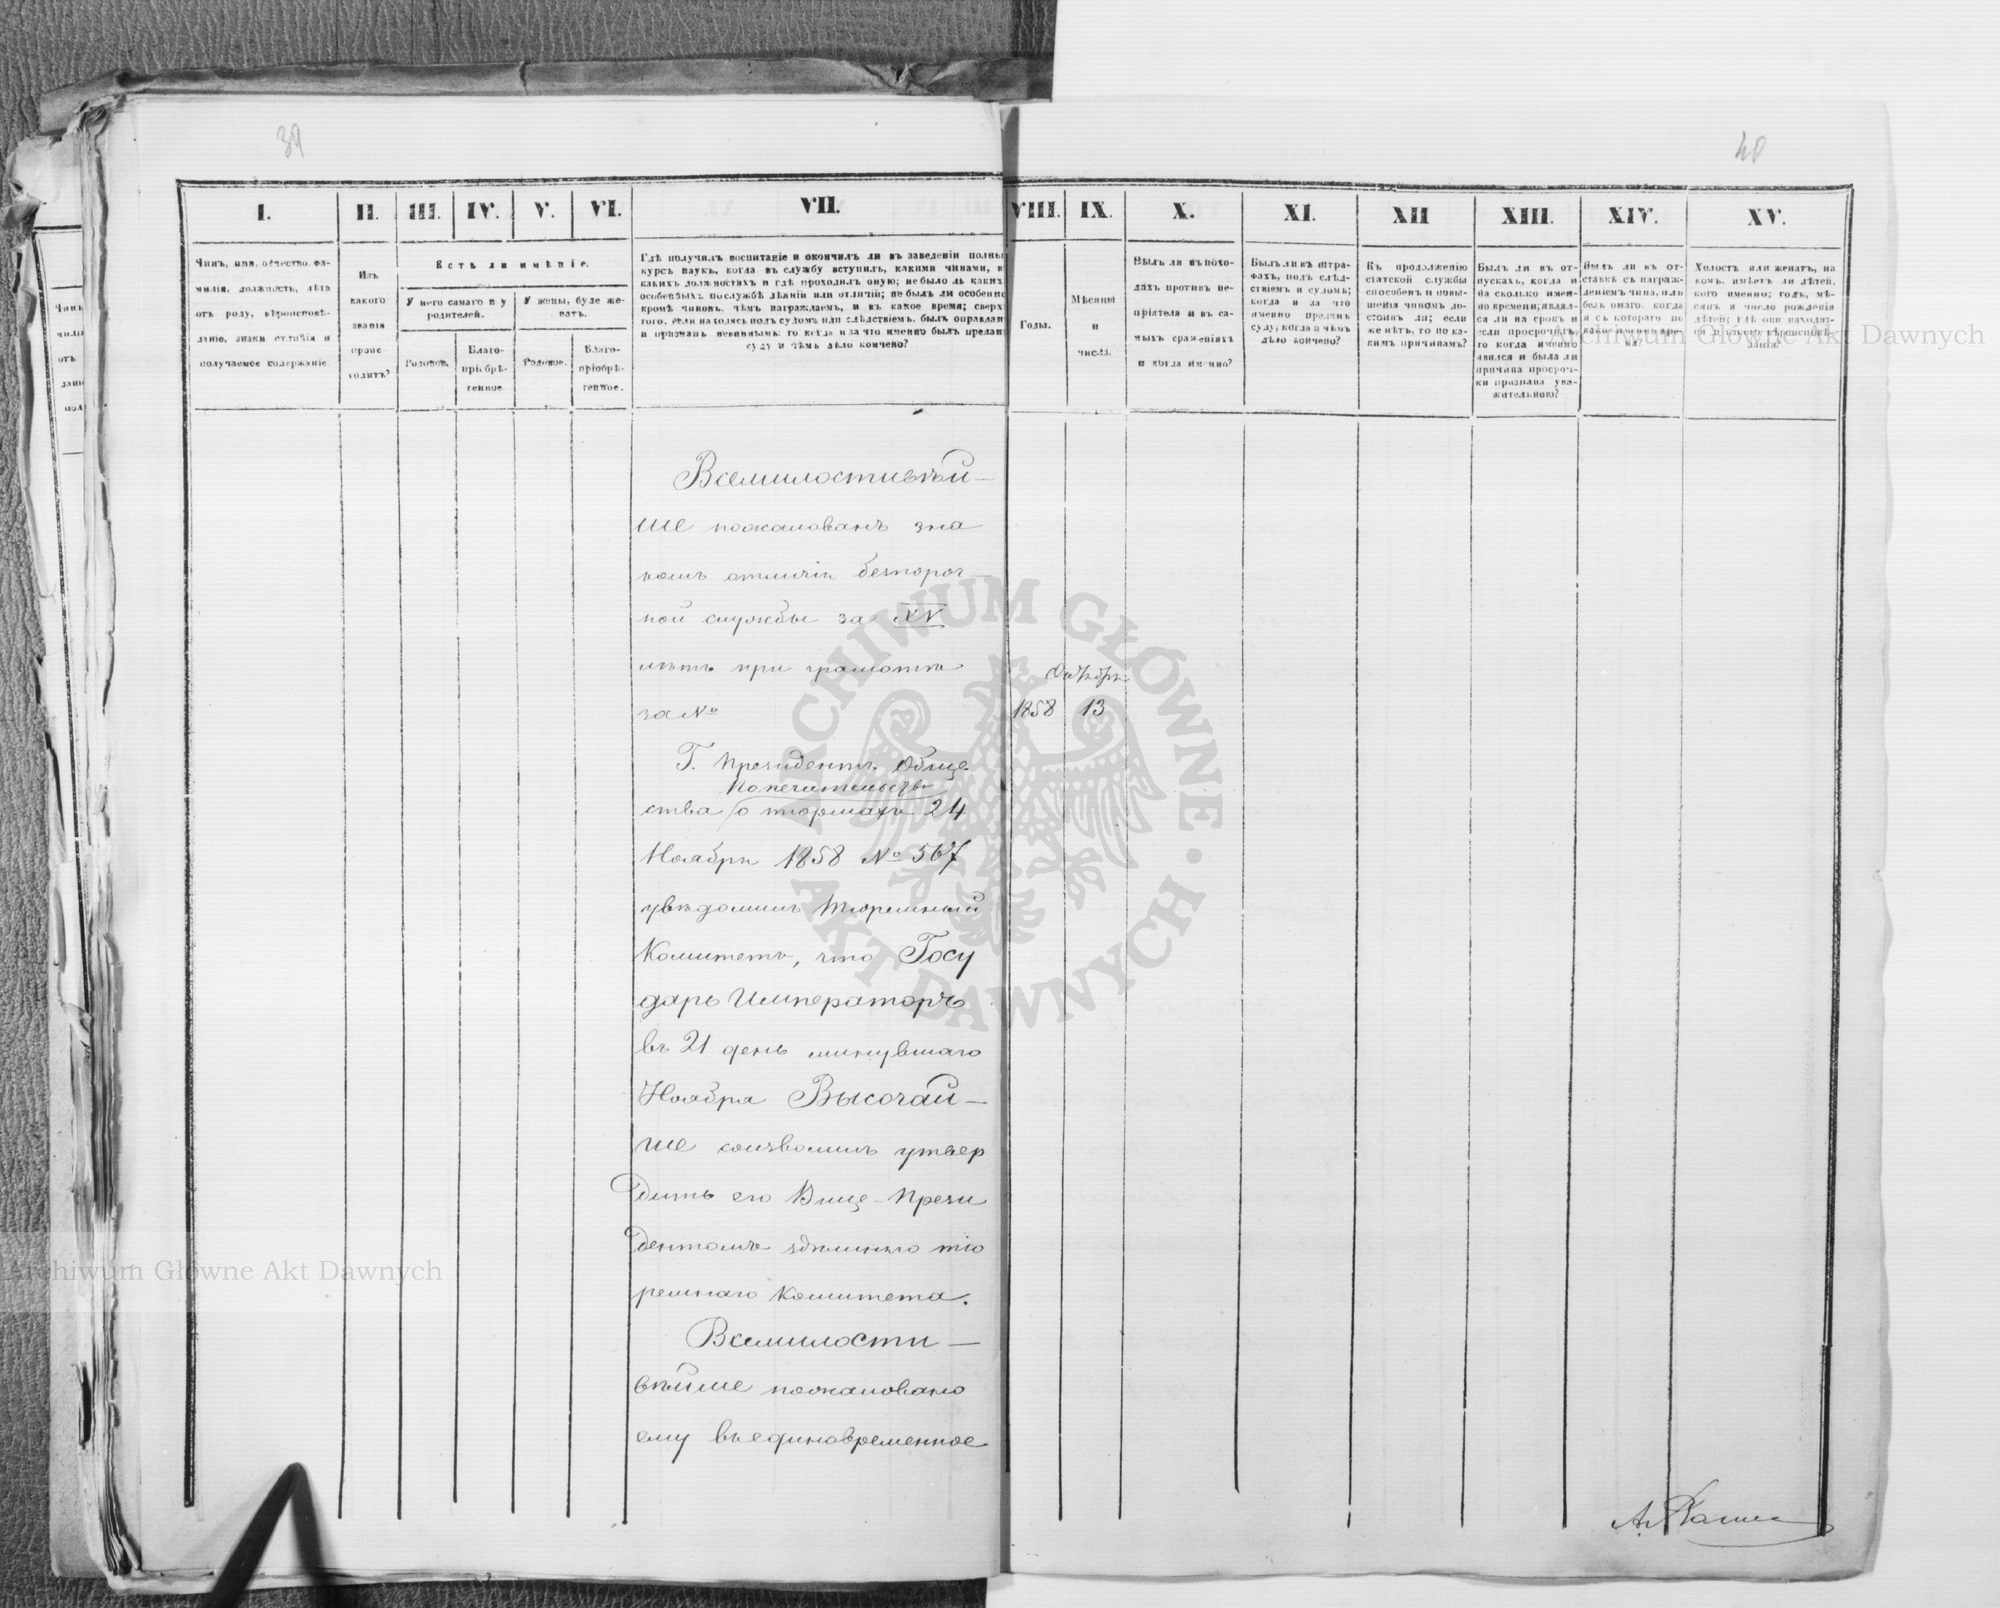 39
40
I. II. III. IV. V. VI. VII. VIII. IX. X. XI. XII XIII. XIV. XV.
Чинъ, имя, отчество, фа-
милія, должность, лѣта
отъ роду, вѣроисповѣ-
даніе, знаки отличія и
получаемое содержаніе.
Изъ
какого
званія
проис
ходитъ?
Есть ли имѣніе.
У него самаго и у
родителей.
У жены, буде же-
натъ.
Родовое.
Благо-
пріобрѣ-
тенное
Родовое.
Благо-
пріобрѣ-
тенное.
Гдѣ получилъ воспитаніе и окончилъ ли въ заведеніи полны
курсъ наукъ, когда въ службу вступилъ, какими чинами, в
какихъ должностяхъ и гдѣ проходилъ оную; не было ль каких
особенныхъ по службѣ дѣяній или отличій; не былъ ли особенно
кромѣ чиновъ, чѣмъ награждаемъ, и въ какое время; сверх
того, если находясь подъ судомъ или слѣдствіемъ, былъ оправдан
и признанъ невиннымъ: то когда и за что именно былъ предан
суду и чѣмъ дѣло кончено?
Годы.
Мѣсяцы
и
числа.
Былъ ли въ похо-
дахъ противъ не-
пріятеля и въ са-
мыхъ сраженіяхъ
и когда именно?
Былъ ли въ штра-
фахъ, подъ слѣд-
ствіемъ и судомъ;
когда и за что
именно преданъ
суду; когда и чѣмъ
дѣло кончено?
Къ продолженію
статской службы
способенъ и повы-
шенія чиномъ до-
стоинъ ли; если
же нѣтъ, то по ка-
кимъ причинамъ?
Былъ ли въ от-
пускахъ, когда и
на сколько имен-
но времени; являл-
ся ли на срокъ и
если просрочилъ,
то когда именно
явился и была ли
причина просроч-
ки признана ува-
жительною?
Былъ ли въ от-
ставкѣ съ награж-
деніемъ чина, или
безъ онаго, когда
и съ котораго по
какое именно вре-
мя?
Холостъ или женатъ, на
комъ, имѣетъ ли дѣтей,
кого именно; годъ, мѣ-
сяцъ и число рожденія
дѣтей; гдѣ они находят-
ся и какого вѣроисповѣ-
данія?
Всемилостивѣй-
ше пожалованъ зна
комъ отличія безпороч
ной службы за XV
лѣтъ при грамотѣ
за №
Октября
1858 13
Г. Президентъ Обще
Попечительнаго
ства о тюрмахъ 24
Ноября 1858 № 567
увѣдомилъ Тюремный
Комитетъ, что Госу
дарь Императоръ
въ 21 день минувшаго
Ноября Высочай-
ше соизволилъ утвер
дить его Вице-Прези
дентомъ здѣшняго тю
ремнаго Комитета.
Всемилости-
вѣйше пожаловано
ему въ единовременное
ARCHIWUM GŁÓWNE AKT DAWNYCH
Archiwum Główne Akt Dawnych
Archiwum Główne Akt Dawnych